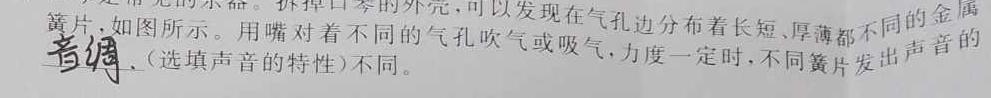 是常见的乐器。拆掉口琴的外壳,可以发现在气孔边分布着长短、厚薄都不同的金属
簧片,如图所示。用嘴对着不同的气孔吹气或吸气,力度一定时,不同簧片发出声音的
音绸.(选填声音的特性)不同。